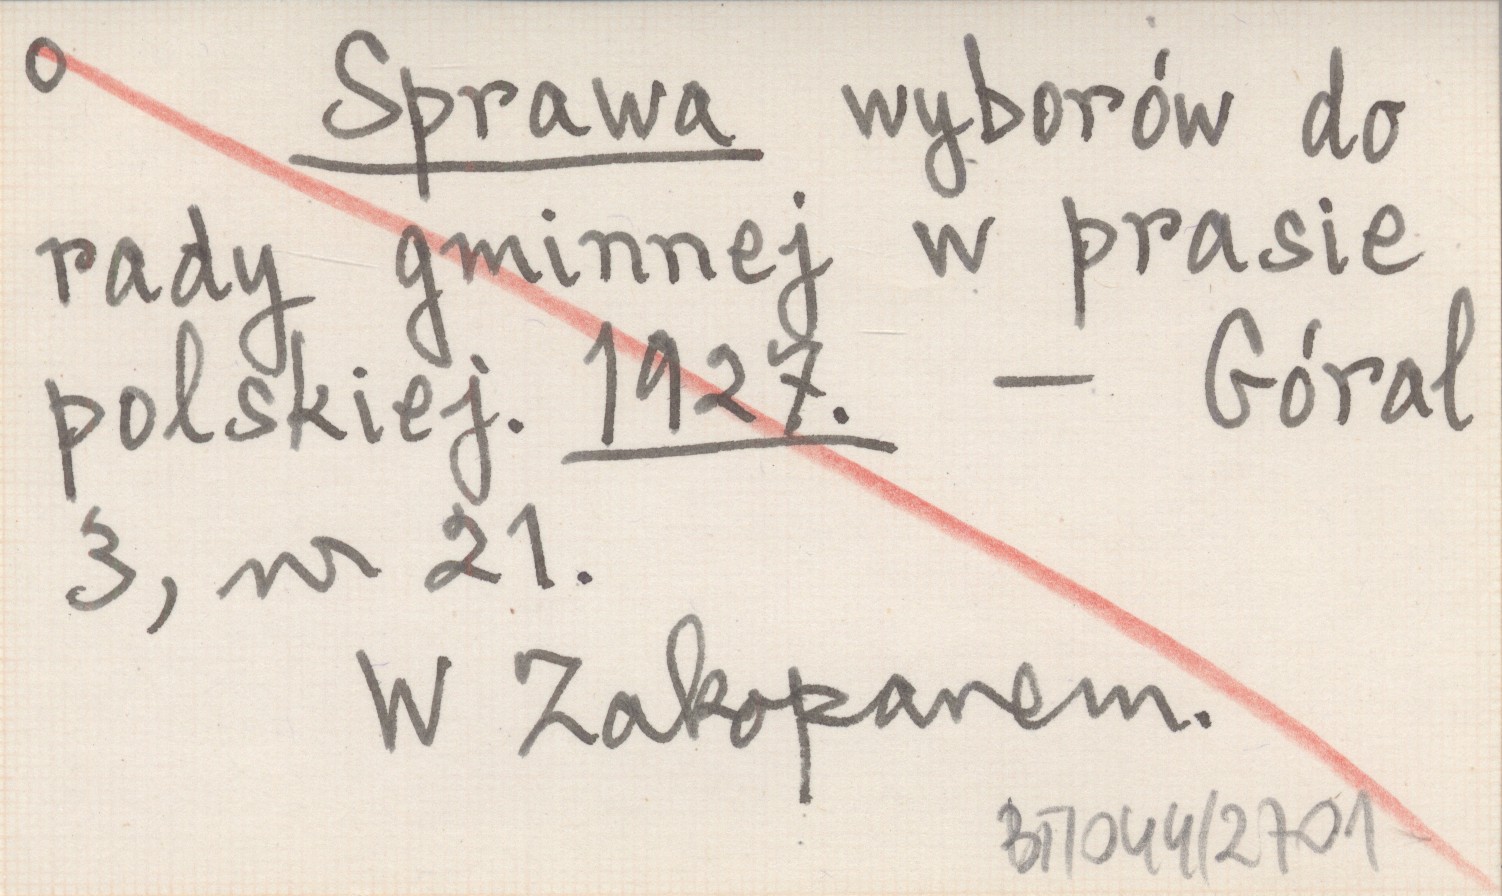 o Sprawa wyborów do
rady gminnej w prasie
polskiej. 1927. — Góral
3, nr 21.
W Zakopanem.
BT/044/2701